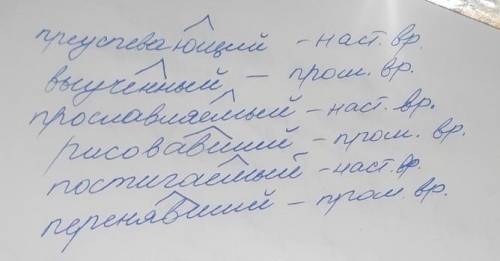 преуспевающий - наст. вр.
выученный - прош. вр.
прославляемый - наст. вр.
рисовавший - прош. вр.
постигаемый - наст. вр.
перенявший - прош. вр.